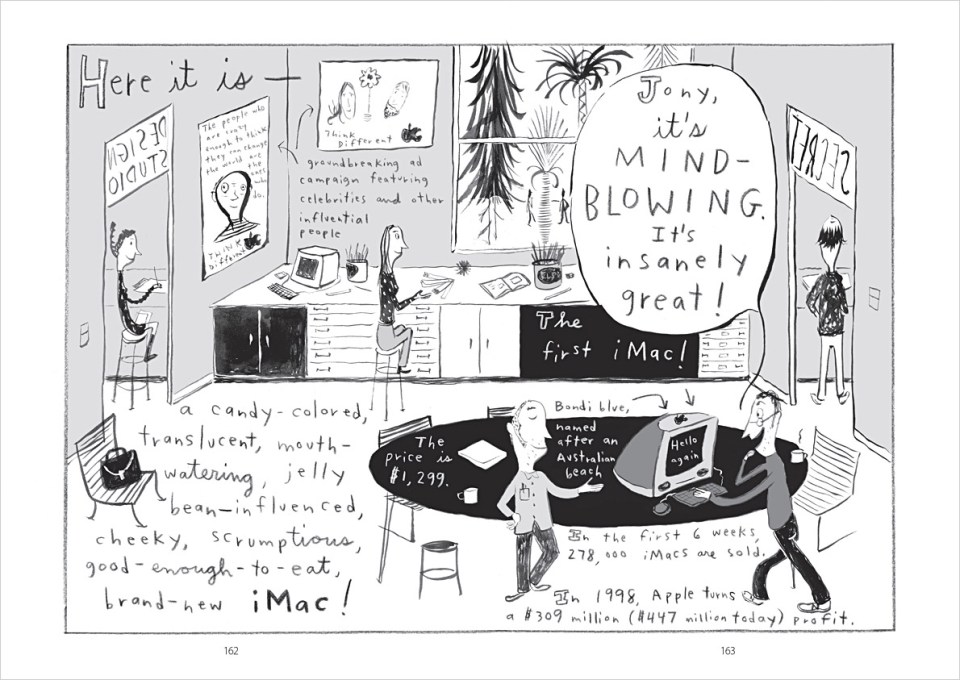 Here it is —
DESIGN
STUDIO
The people who
are crazy
enough to think
they can change
the world are
the
ones
who
do.
Think
Different
Think
Different
groundbreaking ad
campaign featuring
celebrities and other
influential
people
Jony,
it's
MIND-
BLOWING.
It's
insanely
great!
SECRET
The
first iMac!
a candy-colored,
translucent, mouth-
watering, jelly
bean-influenced,
cheeky, scrumptious,
good-enough-to-eat,
brand-new iMac!
The
price is
$1,299.
Bondi blue,
named
after an
Australian
beach
Hello
again
In the first 6 weeks,
278,000 iMacs are sold.
In 1998, Apple turns
a $309 million ($447 million today) profit.
162
163